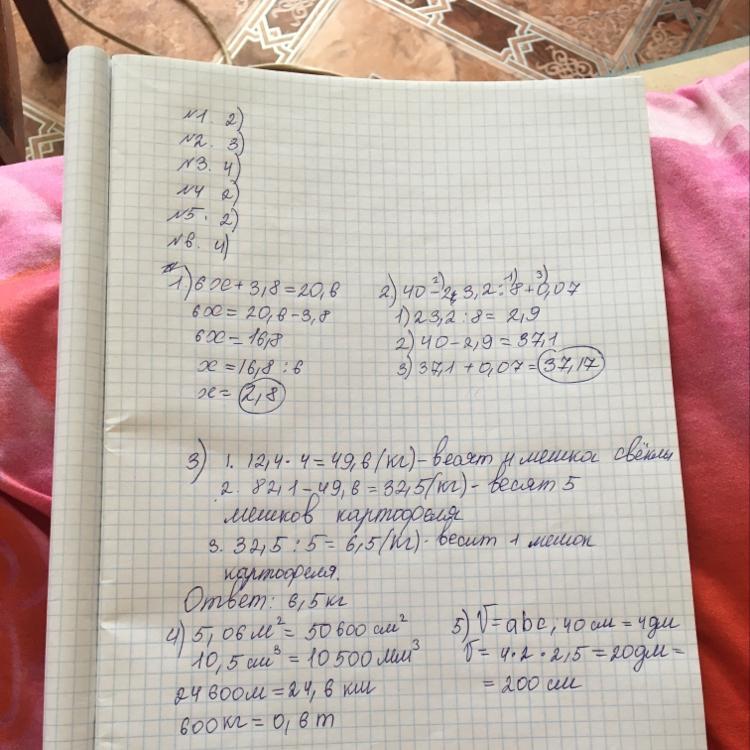 №1. 2)
№2. 3)
№3. 4)
№4 2)
№5. 2)
№6. 4)
1) 6x + 3,8 = 20,6
6x = 20,6 - 3,8
6x = 16,8
x = 16,8 : 6
x = 2,8
2) 40 - 23,2 : 8 + 0,07
2) 1) 3)
1) 23,2 : 8 = 2,9
2) 40 - 2,9 = 37,1
3) 37,1 + 0,07 = 37,17
3) 1. 12,4 · 4 = 49,6 (кг) - весят 4 мешка свёклы
2. 82,1 - 49,6 = 32,5 (кг) - весят 5
мешков картофеля
3. 32,5 : 5 = 6,5 (кг) - весит 1 мешок
картофеля.
Ответ: 6,5 кг
4) 5,06 м² = 50600 см²
10,5 см³ = 10500 мм³
24600 м = 24,6 км
600 кг = 0,6 т
5) V = abc, 40 см = 4 дм
V = 4 · 2 · 2,5 = 20 дм =
= 200 см